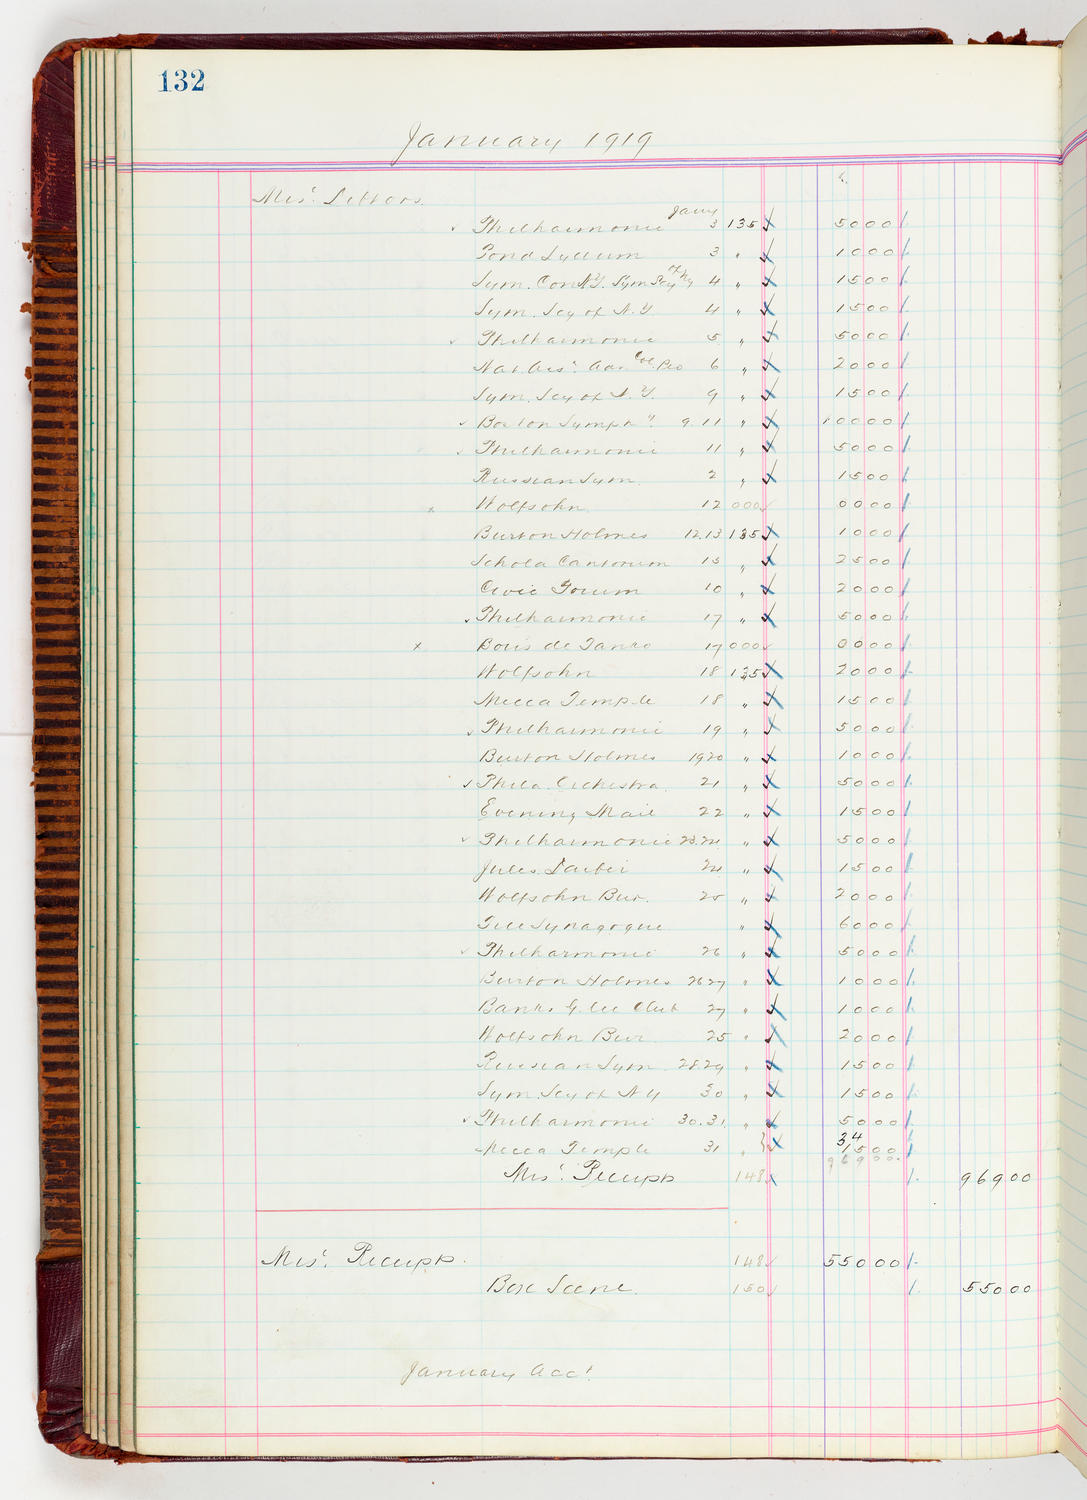 132
January 1919
Mis. Letters
Jany
Philharmonic 3 135 5000
Pond Lyceum 3 " 1000
Sym. Con N.Y. Sym Socy of NY 4 " 1500
Sym. Scy of N.Y. 4 " 1500
Philharmonic 5 " 5000
Nat. 6 " 2000
Sym. Scy of N.Y. 9 " 1500
Boston Symph'y 9.11 " 10000
Philharmonic 11 " 5000
Russian Sym. 2 " 1500
x Wolfsohn 12 000 0000
Burton Holmes 12.13 135 1000
Schola Cantorum 15 " 2500
Civic Forum 10 " 2000
Philharmonic 17 " 5000
x Boris de 17 000 0000
Wolfsohn 18 135 2000
Mecca Temple 18 " 1500
Philharmonic 19 " 5000
Burton Holmes 1920 " 1000
Phila. Orchestra 21 " 5000
Evening Mail 22 " 1500
Philharmonic 23.24 " 5000
Jules 24 " 1500
Wolfsohn Bur. 25 " 2000
Free Synagogue " 6000
Philharmonic 26 " 5000
Burton Holmes 26 27 " 1000
Banks Glee Club 27 " 1000
Wolfsohn Bur 25 " 2000
Russian Sym. 28.29 " 1500
Sym. Scy of N Y 30 " 1500
Philharmonic 30.31 " 5000
34
Mecca Temple 31 " 1500
96900
Mis. Receipts 148 96900
Mis. Receipts. 148 55000
Box Scene. 150 55000
January Acct.